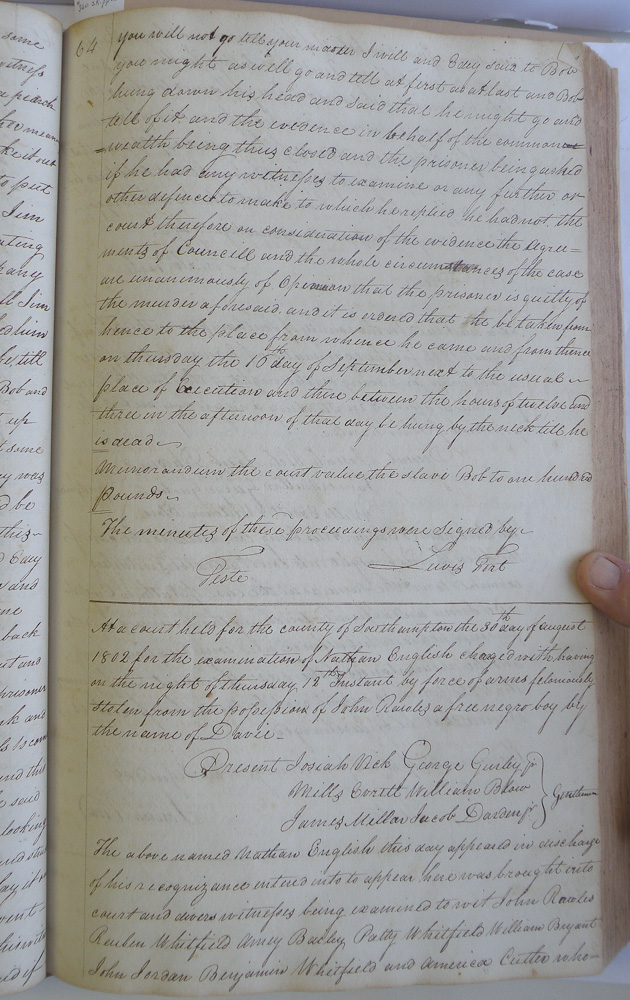 64
you will not go tell your master I will and Edey said to Bob
you might as well go and tell at first as at last and Bob
hung down his head and said that he might go and
tell of it and the evidence in behalf of the common
wealth being thus closed and the prisoner being asked
if he had any witnesses to examine or any further or
other defence to make to which he replied he had not the
court therefore on consideration of the evidence the Argee=
ments of Councell and the whole circumstances of the case
are unanimously of Opinion that the prisoner is guilty of
the murder aforesaid and it is ordered that he be taken from
hence to the place from whence he came and from thence
on thursday the 10th day of September next to the usual
place of Execution and there between the hours of twelve and
three in the afternoon of that day be hung by the neck till he
is dead
Memorandum the court value the slave Bob to one hundred
pounds
The minutes of these proceedings were Signed by
Teste Lewis Fort
At a court held for the county of Southampton the 30th day of august
1802 for the examination of Nathan English charged with having
on the night of thursday 12th Instant by force of arms feloniously
stolen from the possession of John Rawles a free negro boy by
the name of Davie
Present Josiah Vick George Gurley jr
Mills Everett William Blow
James Millar Jacob Darden jr
Gentlemen
The above named Nathan English this day appeared in discharge
of his recognizance entered into to appear here was brought into
court and divers witnesses being examined to wit John Rawles
Reuben Whitfield Amey Bailey Patty Whitfield William Bryant
John Jordan Benjamin Whitfield and America Cutler who